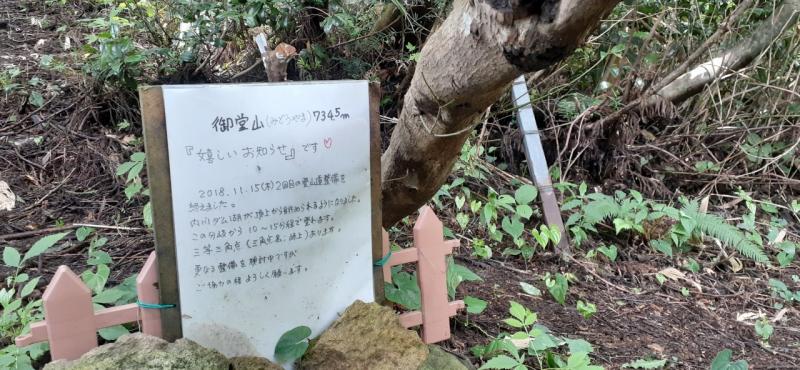 御堂山(みどうやま)734.5m
『嬉しいお知らせ』です♡
2018.11.15(木)2回目の登山道整備を
終えました。
内川ダム湖が頂上から眺められるようになりました。
この分岐から10〜15分程で登れます。
三等三角点(三角点名:坪上)あります。
更なる整備を検討中ですが
ご協力の程よろしく願います。